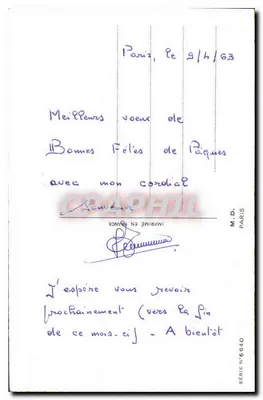 Paris, le 9/4/63
Meilleurs voeux de
Bonnes Fêtes de Pâques
avec mon cordial
Souvenir
IMPRIMÉ EN FRANCE
M.D.
PARIS
J'espère vous revoir
prochainement (vers la fin
de ce mois-ci) - A bientôt
SÉRIE N° 6640